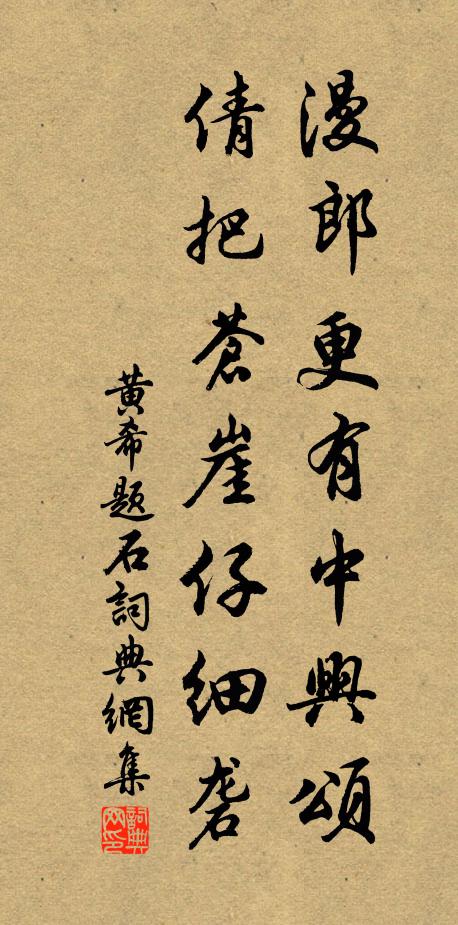 漫郎更有中興頌
倩把蒼崖仔細砻
黄希题石詞典網集
詞典網印